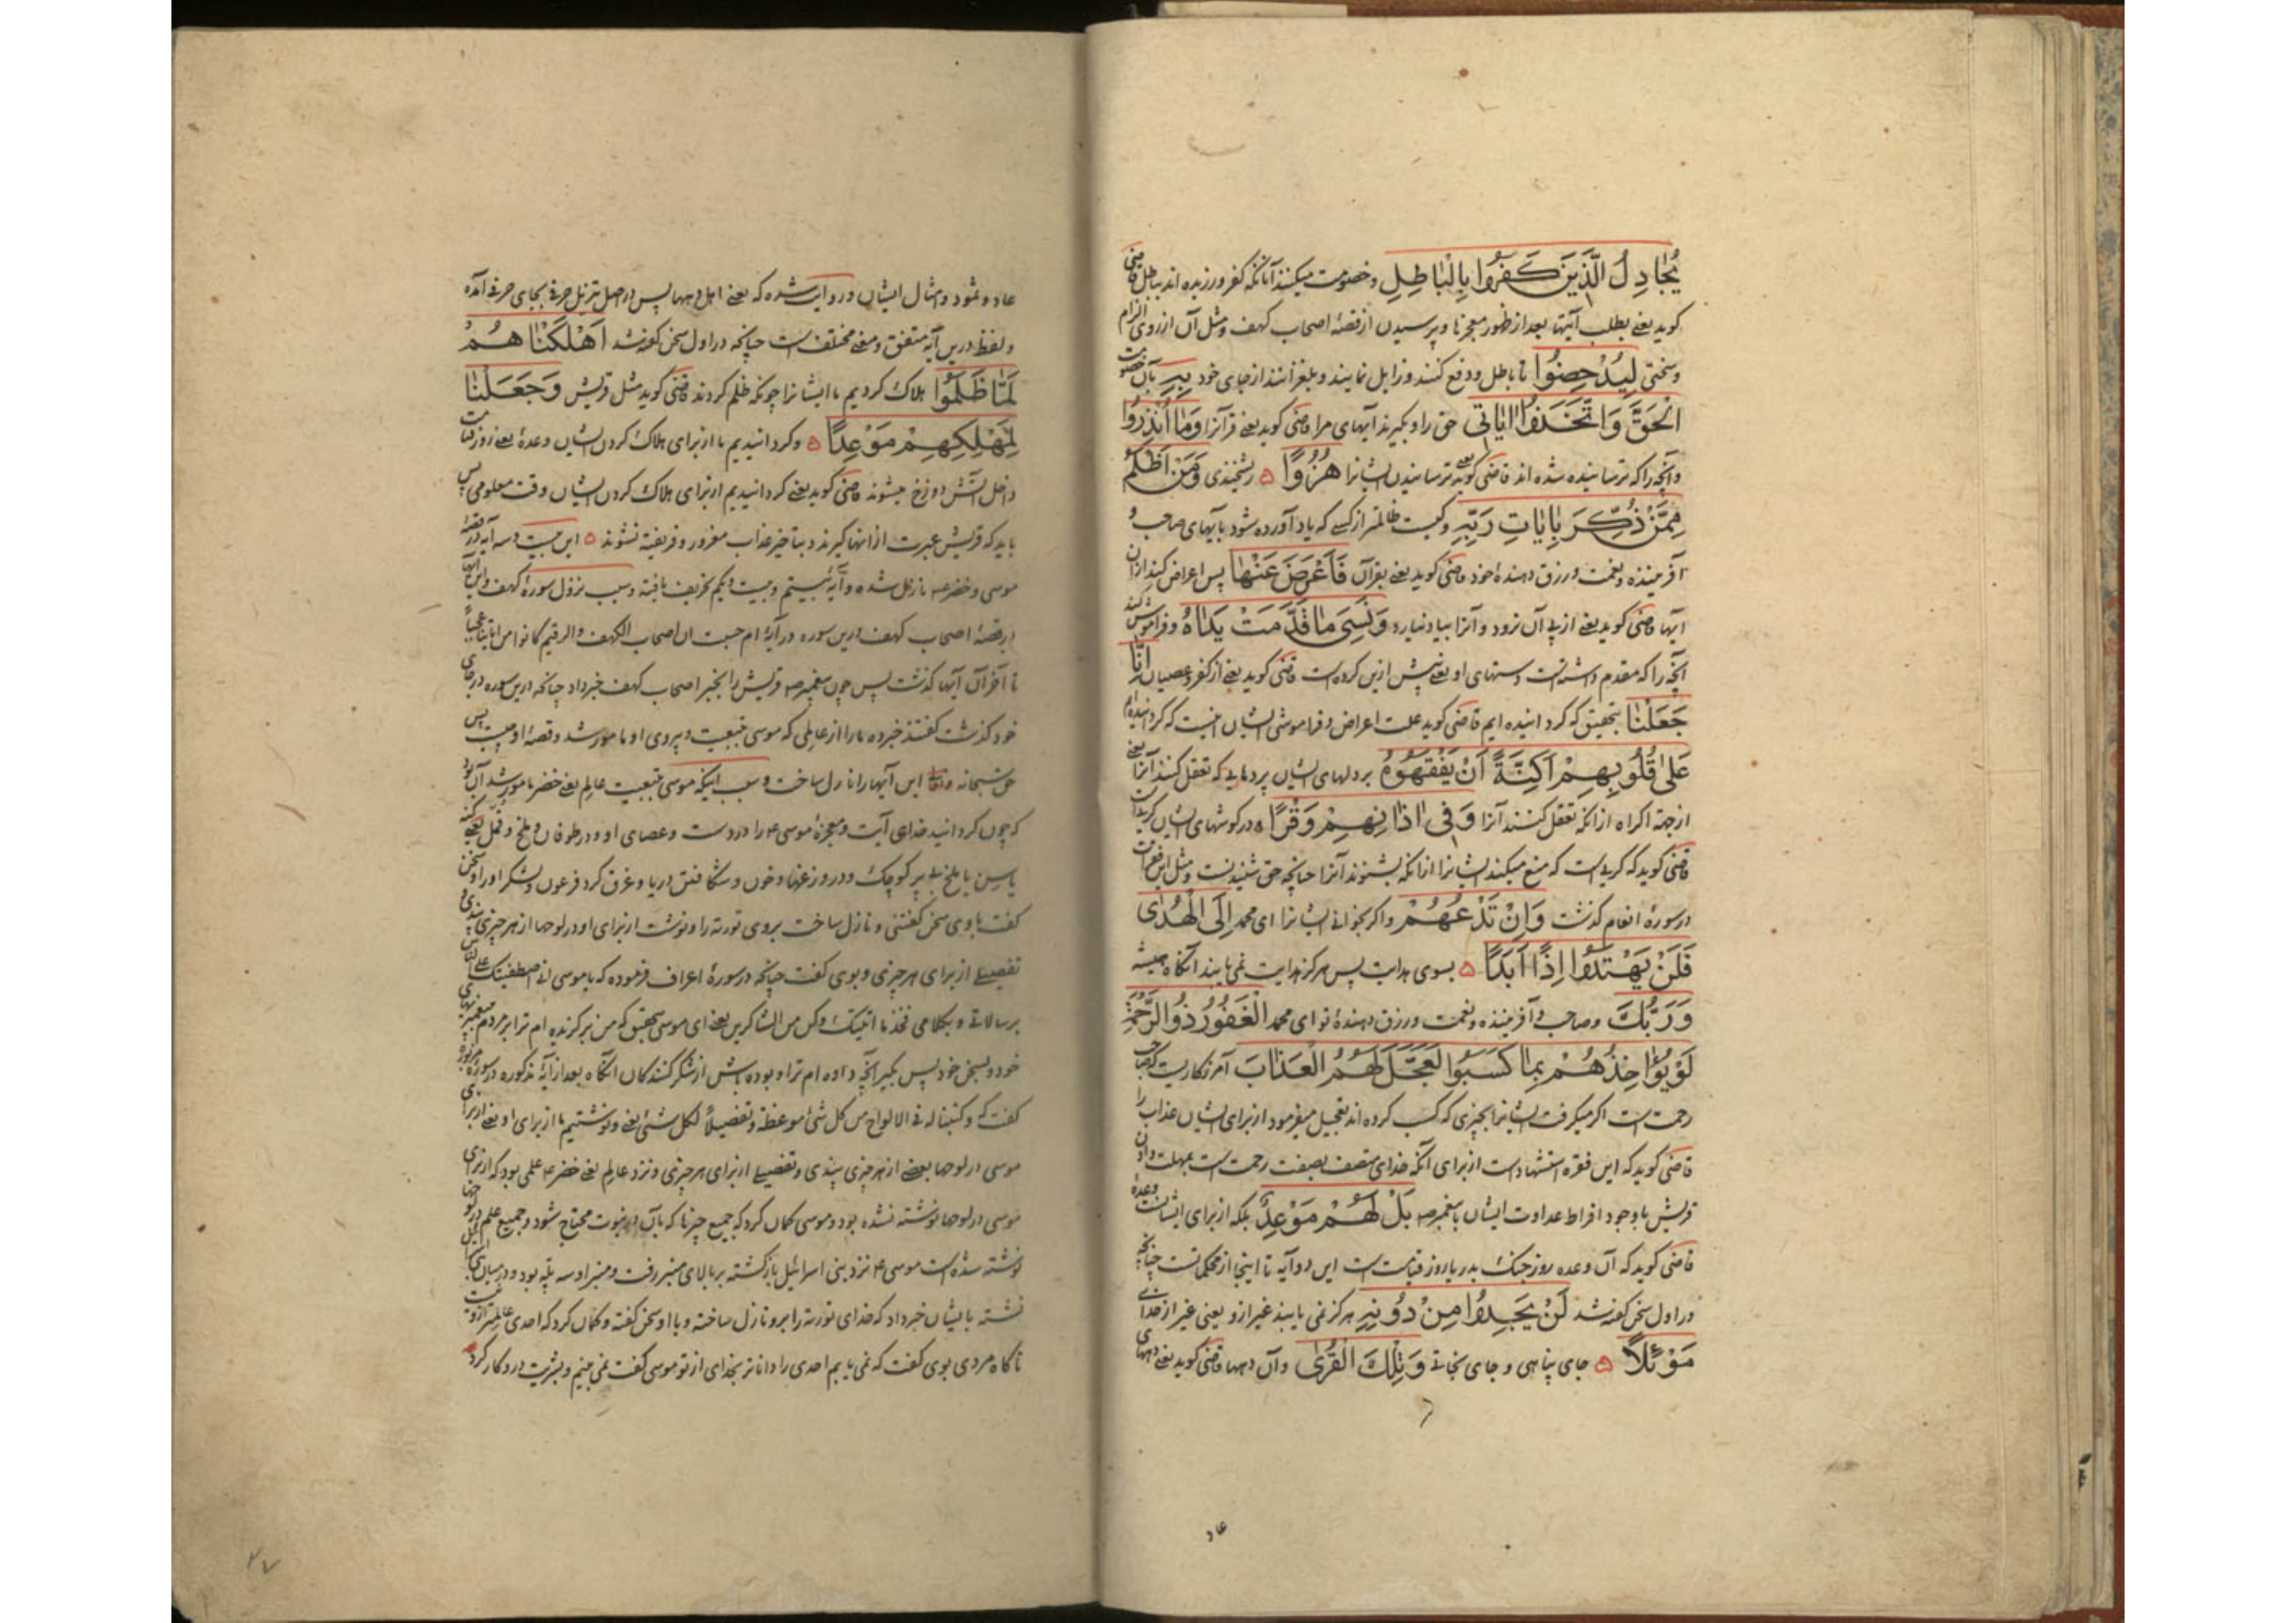 يُجَادِلُ الَّذِينَ كَفَرُوا بِالْبَاطِلِ و خصومت میکنند آنانکه کفر ورزیده اند بباطل قاضی
کوید یعنی بطلب آیتها بعد از ظهور معجزها و پرسیدن از قصهٔ اصحاب کهف و مثل آن از روی الزام
وسختی لِيُدْحِضُوا تا باطل و دفع کنند و زایل نمایند و بلغزانند از جای خود بِهِ بآن خصومت
الْحَقَّ وَاتَّخَذُوا اٰيَاتِي حق را و بگیرند آیهای مرا قاضی کوید یعنی قرآنرا وَمَا أُنْذِرُوا
و آنچه را که ترسانیده شده اند قاضی کوید یعنی ترسانیدن ایشانرا هُزُوًا ۵ ریشخندی وَمَنْ أَظْلَمُ
مِمَّنْ ذُكِّرَ بِاٰيَاتِ رَبِّهِ و کیست ظالمتر از کسی که یاد آورده شود بآیهای صاحب و
آفریننده و نعمت و رزق دهندهٔ خود قاضی کوید یعنی بقرآن فَأَعْرَضَ عَنْهَا پس اعراض کند از آن
آیها قاضی کوید یعنی از پی آن نرود و آنرا بیاد نیارد وَنَسِيَ مَا قَدَّمَتْ يَدَاهُ و فراموش کند
آنچه را که مقدم داشته است دستهای او یعنی پیش ازین کرده است قاضی کوید یعنی از کفر و عصیان إِنَّا
جَعَلْنَا بتحقیق که کردانیده ایم قاضی کوید علت اعراض و فراموشی ایشان اینست که کردانیده ایم
عَلَى قُلُوبِهِمْ أَكِنَّةً أَنْ يَفْقَهُوهُ بر دلهای ایشان پردهایی که تعقل کنند آنرا یعنی
از جهة اکراه از آنکه تعقل کنند آنرا وَفِي اٰذَانِهِمْ وَقْرًا ۵ در کوشهای ایشان کریست
قاضی کوید که کریست که منع میکند ایشانرا از آنکه بشنوند آنرا چنانچه حق شنیدنست و مثل این فقرات
در سورهٔ انعام کذشت وَإِنْ تَدْعُهُمْ و اکر بخوانی ایشانرا ای محمد إِلَى الْهُدَى
فَلَنْ يَهْتَدُوا إِذًا أَبَدًا ۵ بسوی هدایت پس هرکز هدایت نمی یابند آنکاه همیشه
وَرَبُّكَ و صاحب و آفریننده و نعمت و رزق دهندهٔ تو ای محمد الْغَفُورُ ذُو الرَّحْمَةِ
لَوْ يُؤَاخِذُهُمْ بِمَا كَسَبُوا لَعَجَّلَ لَهُمُ الْعَذَابَ آمرزکاریست که صاحب
رحمت است اکر میکرفت ایشانرا بچیزی که کسب کرده اند تعجیل میفرمود از برای ایشان عذاب را
قاضی کوید که این فقره استشهاد است از برای آنکه خدای متصف بصفت رحمت است بمهلت دادن
قریش با وجود افراط عداوت ایشان با پیغمبر صه بَلْ لَهُمْ مَوْعِدٌ بلکه از برای ایشانست وعدهٔ
قاضی کوید که آن وعده روز جنک بدر یا روز قیامت است این دو آیه تا اینجا از محکماتست چنانچه
در اول سخن کفته شد لَنْ يَجِدُوا مِنْ دُونِهِ هرکز نمی یابند غیر ازو یعنی غیر از خدای
مَوْئِلًا ۵ جای پناهی و جای نجاتی وَتِلْكَ الْقُرَى و آن دهها قاضی کوید یعنی دههای
عاد
عاد و ثمود و امثال ایشان و روایت شده که یعنی اهل دهها پس در اصل تنزیل حرفی بجای حرفی آمده
و لفظ درین آیه متفق و معنی مختلف است چنانچه در اول سخن کفته شد أَهْلَكْنَاهُمْ
لَمَّا ظَلَمُوا هلاک کردیم ما ایشانرا چونکه ظلم کردند قاضی کوید مثل قریش وَجَعَلْنَا
لِمَهْلِكِهِمْ مَوْعِدًا ۵ و کردانیدیم ما از برای هلاک کردن ایشان وعدهٔ یعنی روز قیامت
داخل آتش دوزخ میشوند قاضی کوید یعنی کردانیدیم از برای هلاک کردن ایشان وقت معلومی پس
باید که قریش عبرت از اینها کیرند و بتاخیر عذاب مغرور و فریفته نشوند ۵ این بیست و سه آیه در قصهٔ
موسی و خضر عه نازل شده و آیهٔ بیستم و بیست و یکم تحریف یافته و سبب نزول سورهٔ کهف و این آیها
در قصهٔ اصحاب کهف درین سوره در آیهٔ ام حسبت ان اصحاب الکهف والرقیم کانوا من ایاتنا عجباً
تا آخر آن آیها کذشت پس چون پیغمبر صه قریش را بخبر اصحاب کهف خبر داد چنانچه درین سوره در جای
خود کذشت کفتند خبر ده ما را از عالمی که موسی بتبعیت و پیروی او مامور شد و قصهٔ او چیست پس
حق سبحانه و تعالی این آیها را نازل ساخت و سبب اینکه موسی بتبعیت عالم یعنی خضر مامور شد آن بود
که چون کردانید خدای آیت و معجزهٔ موسی ع را در دست و عصای او و در طوفان و ملخ و قمل یعنی کنه
یا سبن یا ملخ بی پر کوچک و در وزغها و خون و شکافتن دریا و غرق کرد فرعون و لشکر او را و سخن
کفت با وی سخن کفتنی و نازل ساخت بروی توریة را و نوشت از برای او در لوحها از هر چیزی پندی و
تفصیلی از برای هر چیزی و بوی کفت چنانچه در سورهٔ اعراف فرموده که یا موسی انی اصطفیتک علی الناس
برسالاتی و بکلامی فخذ ما اتیتک وکن من الشاکرین یعنی ای موسی بتحقیق که من برکزیده ام ترا بر مردم بپیغمبریهای
خود و بسخن خود پس بکیر آنچه داده ام ترا و بوده باش از شکر کنندکان آنکاه بعد از آیهٔ مذکوره در سورهٔ مزبوره
کفت که و کتبنا له فی الالواح من کل شیٔ موعظة و تفصیلاً لکل شیٔ یعنی و نوشتیم ما از برای او یعنی از برای
موسی در لوحها بعضی از هر چیزی پندی و تفصیلی از برای هر چیزی و نزد عالم یعنی خضر ع علمی بود که از برای
موسی در لوحها نوشته نشده بود و موسی کمان کرد که جمیع چیزها که بآن در نبوت محتاج شود و جمیع علم در لوحها
نوشته شده است موسی ع نزد بنی اسرائیل بازکشته بر بالای منبر رفت و منبر او سه پله بود و در میان
نشسته بایشان خبر داد که خدای توریة را برو نازل ساخته و با او سخن کفته و کمان کرد که احدی عالمتر ازو نیست
ناکاه مردی بوی کفت که نمی یابم احدی را داناتر بخدای از تو موسی کفت نمی بینم و بشریت درو کار کرد
۴۷